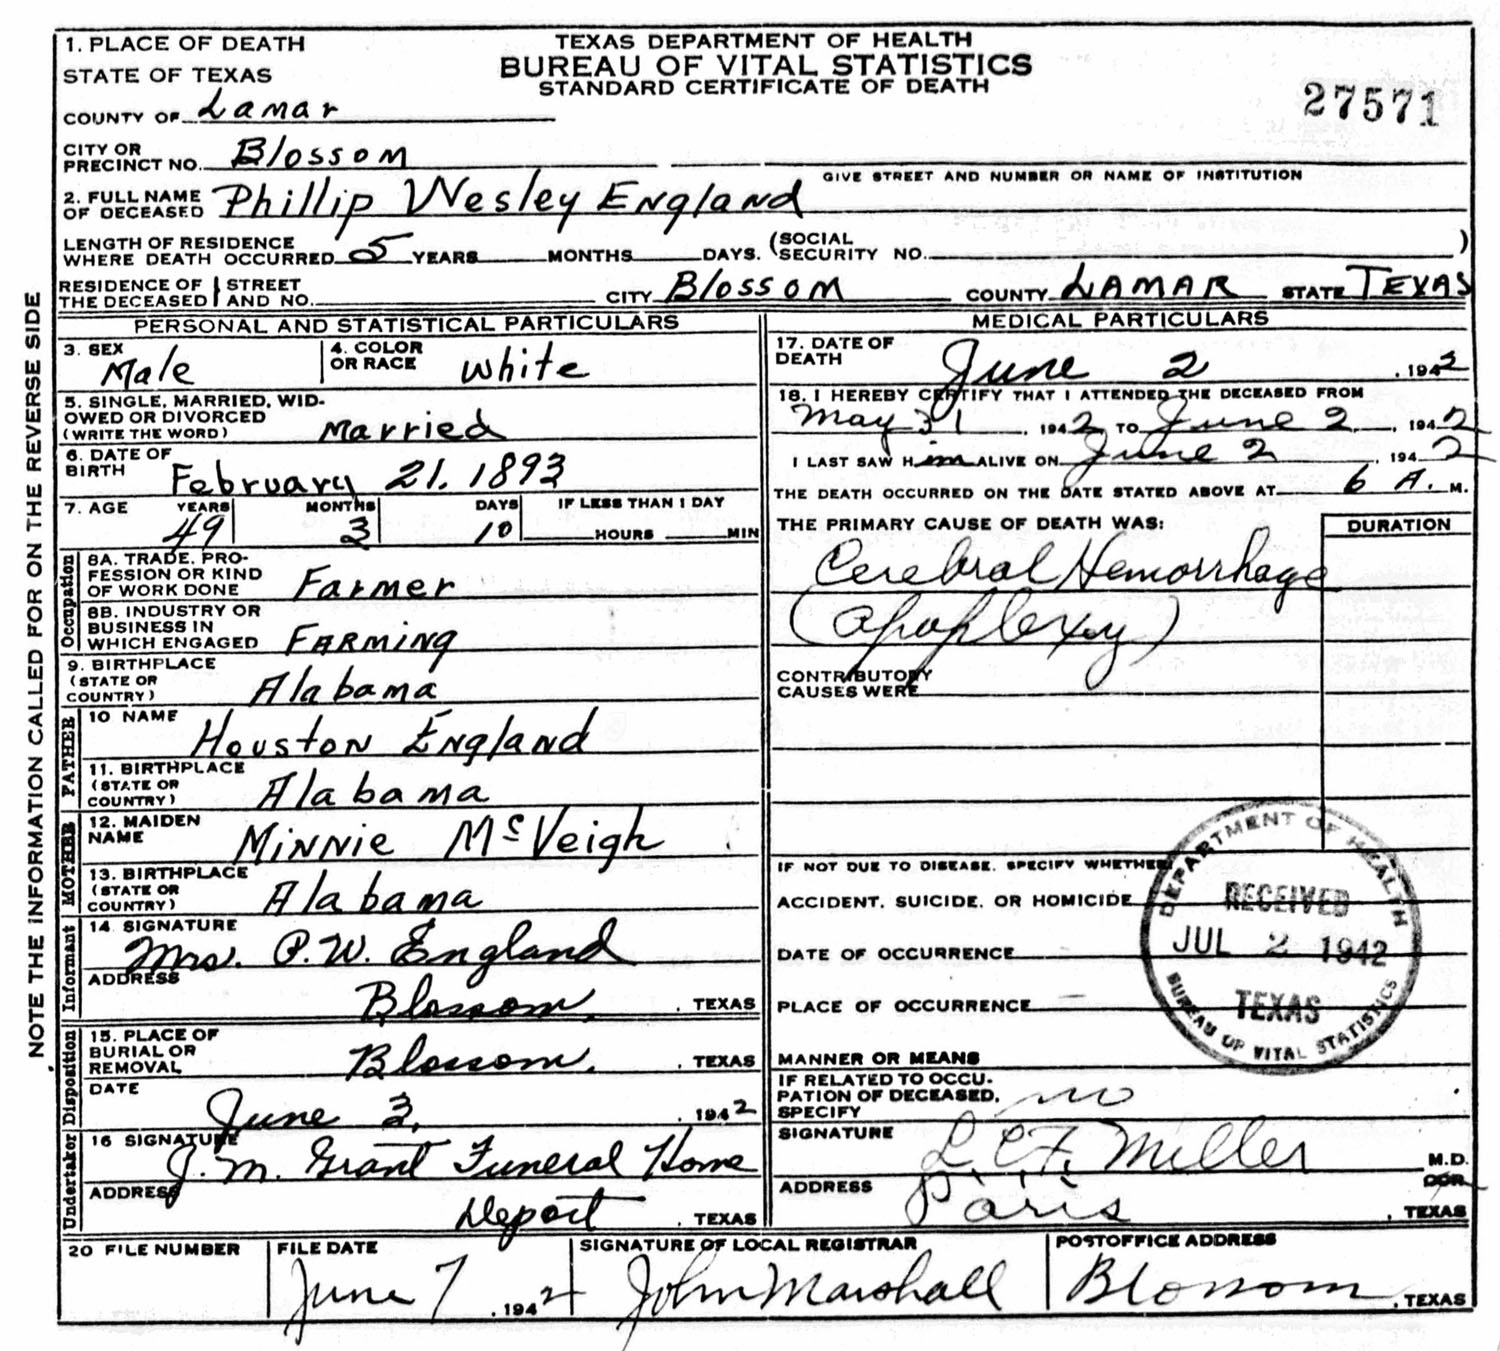 1. PLACE OF DEATH
STATE OF TEXAS
COUNTY OF Lamar
TEXAS DEPARTMENT OF HEALTH
BUREAU OF VITAL STATISTICS
STANDARD CERTIFICATE OF DEATH
27571
CITY OR
PRECINCT NO. Blossom
GIVE STREET AND NUMBER OR NAME OF INSTITUTION
2. FULL NAME
OF DECEASED Phillip Wesley England
LENGTH OF RESIDENCE
WHERE DEATH OCCURRED 5 YEARS MONTHS DAYS. (SOCIAL
SECURITY NO. )
RESIDENCE OF
THE DECEASED
STREET
AND NO. CITY Blossom COUNTY LAMAR STATE TEXAS
PERSONAL AND STATISTICAL PARTICULARS
3. SEX
Male
4. COLOR
OR RACE White
5. SINGLE, MARRIED, WID-
OWED OR DIVORCED
(WRITE THE WORD) Married
6. DATE OF
BIRTH February 21. 1893
7. AGE YEARS MONTHS DAYS IF LESS THAN 1 DAY
49 3 10 HOURS MIN
Occupation
8A. TRADE, PRO-
FESSION OR KIND
OF WORK DONE Farmer
8B. INDUSTRY OR
BUSINESS IN
WHICH ENGAGED FARMING
9. BIRTHPLACE
(STATE OR
COUNTRY) Alabama
FATHER
10 NAME
Houston England
11. BIRTHPLACE
(STATE OR
COUNTRY) Alabama
MOTHER
12. MAIDEN
NAME Minnie McVeigh
13. BIRTHPLACE
(STATE OR
COUNTRY) Alabama
Informant
14. SIGNATURE
Mrs. P.W. England
ADDRESS
Blossom, . TEXAS
Disposition
15. PLACE OF
BURIAL OR
REMOVAL Blossom, . TEXAS
DATE
June 3, . 1942
Undertaker
16 SIGNATURE
J. M. Grant Funeral Home
ADDRESS
Deport . TEXAS
MEDICAL PARTICULARS
17. DATE OF
DEATH June 2 . 1942
18. I HEREBY CERTIFY THAT I ATTENDED THE DECEASED FROM
May 31 , 1942 TO June 2 , 1942
I LAST SAW Him ALIVE ON June 2 , 1942
THE DEATH OCCURRED ON THE DATE STATED ABOVE AT 6 A. M.
THE PRIMARY CAUSE OF DEATH WAS: DURATION
Cerebral Hemorrhage
(apoplexy)
CONTRIBUTORY
CAUSES WERE
IF NOT DUE TO DISEASE, SPECIFY WHETHER
ACCIDENT, SUICIDE, OR HOMICIDE
DATE OF OCCURRENCE
PLACE OF OCCURRENCE
DEPARTMENT OF HEALTH
RECEIVED
JUL 2 1942
TEXAS
BUREAU OF VITAL STATISTICS
MANNER OR MEANS
IF RELATED TO OCCU-
PATION OF DECEASED,
SPECIFY no
SIGNATURE L. C. F. Miller M.D.
COR.
ADDRESS Paris , TEXAS
20 FILE NUMBER
FILE DATE
June 7 . 1942
SIGNATURE OF LOCAL REGISTRAR
John Marshall
POSTOFFICE ADDRESS
Blossom . TEXAS
NOTE THE INFORMATION CALLED FOR ON THE REVERSE SIDE